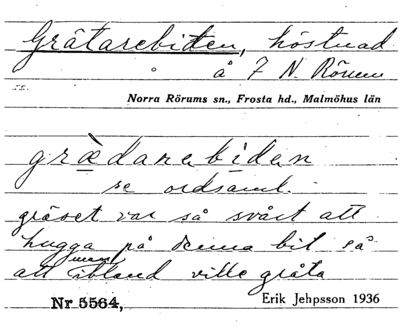 Gråtarebiten, höstnad
å 7 N. Rörum
Norra Rörums sn., Frosta hd., Malmöhus län
grædarebiden
se ordsaml.
gräset var så svårt att
hugga på denna bit så
att man ibland ville gråta
Nr 5564,
Erik Jehpsson 1936